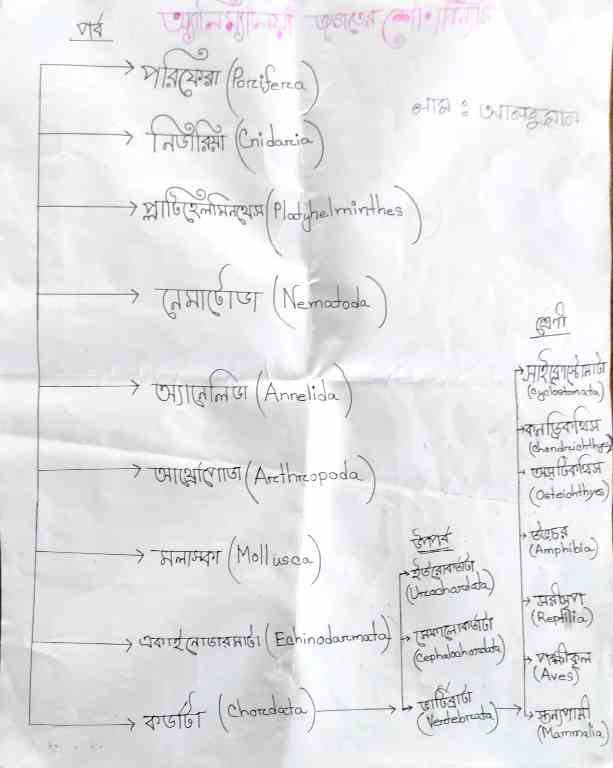 অ্যানিম্যালিয়া জগতের শ্রেণিবিন্যাস
পর্ব
নাম :
পরিফেরা (Porifera)
নিডারিয়া (Cnidaria)
প্লাটিহেলমিনথেস (Platyhelminthes)
নেমাটোডা (Nematoda)
অ্যানেলিডা (Annelida)
আর্থ্রোপোডা (Arthropoda)
মলাস্কা (Mollusca)
একাইনোডারমাটা (Echinodarmata)
কর্ডাটা (Chordata)
উপপর্ব
ইউরোকর্ডাটা
(Urochordata)
সেফালোকর্ডাটা
(Cephalochordata)
ভার্টিব্রাটা
(Vertebrata)
শ্রেণী
সাইক্লোস্টোমাটা
(Cyclostomata)
কনড্রিকথিস
(Chondrichthyes)
অসটিকথিস
(Osteichthyes)
উভচর
(Amphibia)
সরীসৃপ
(Reptilia)
পক্ষীকূল
(Aves)
স্তন্যপায়ী
(Mammalia)